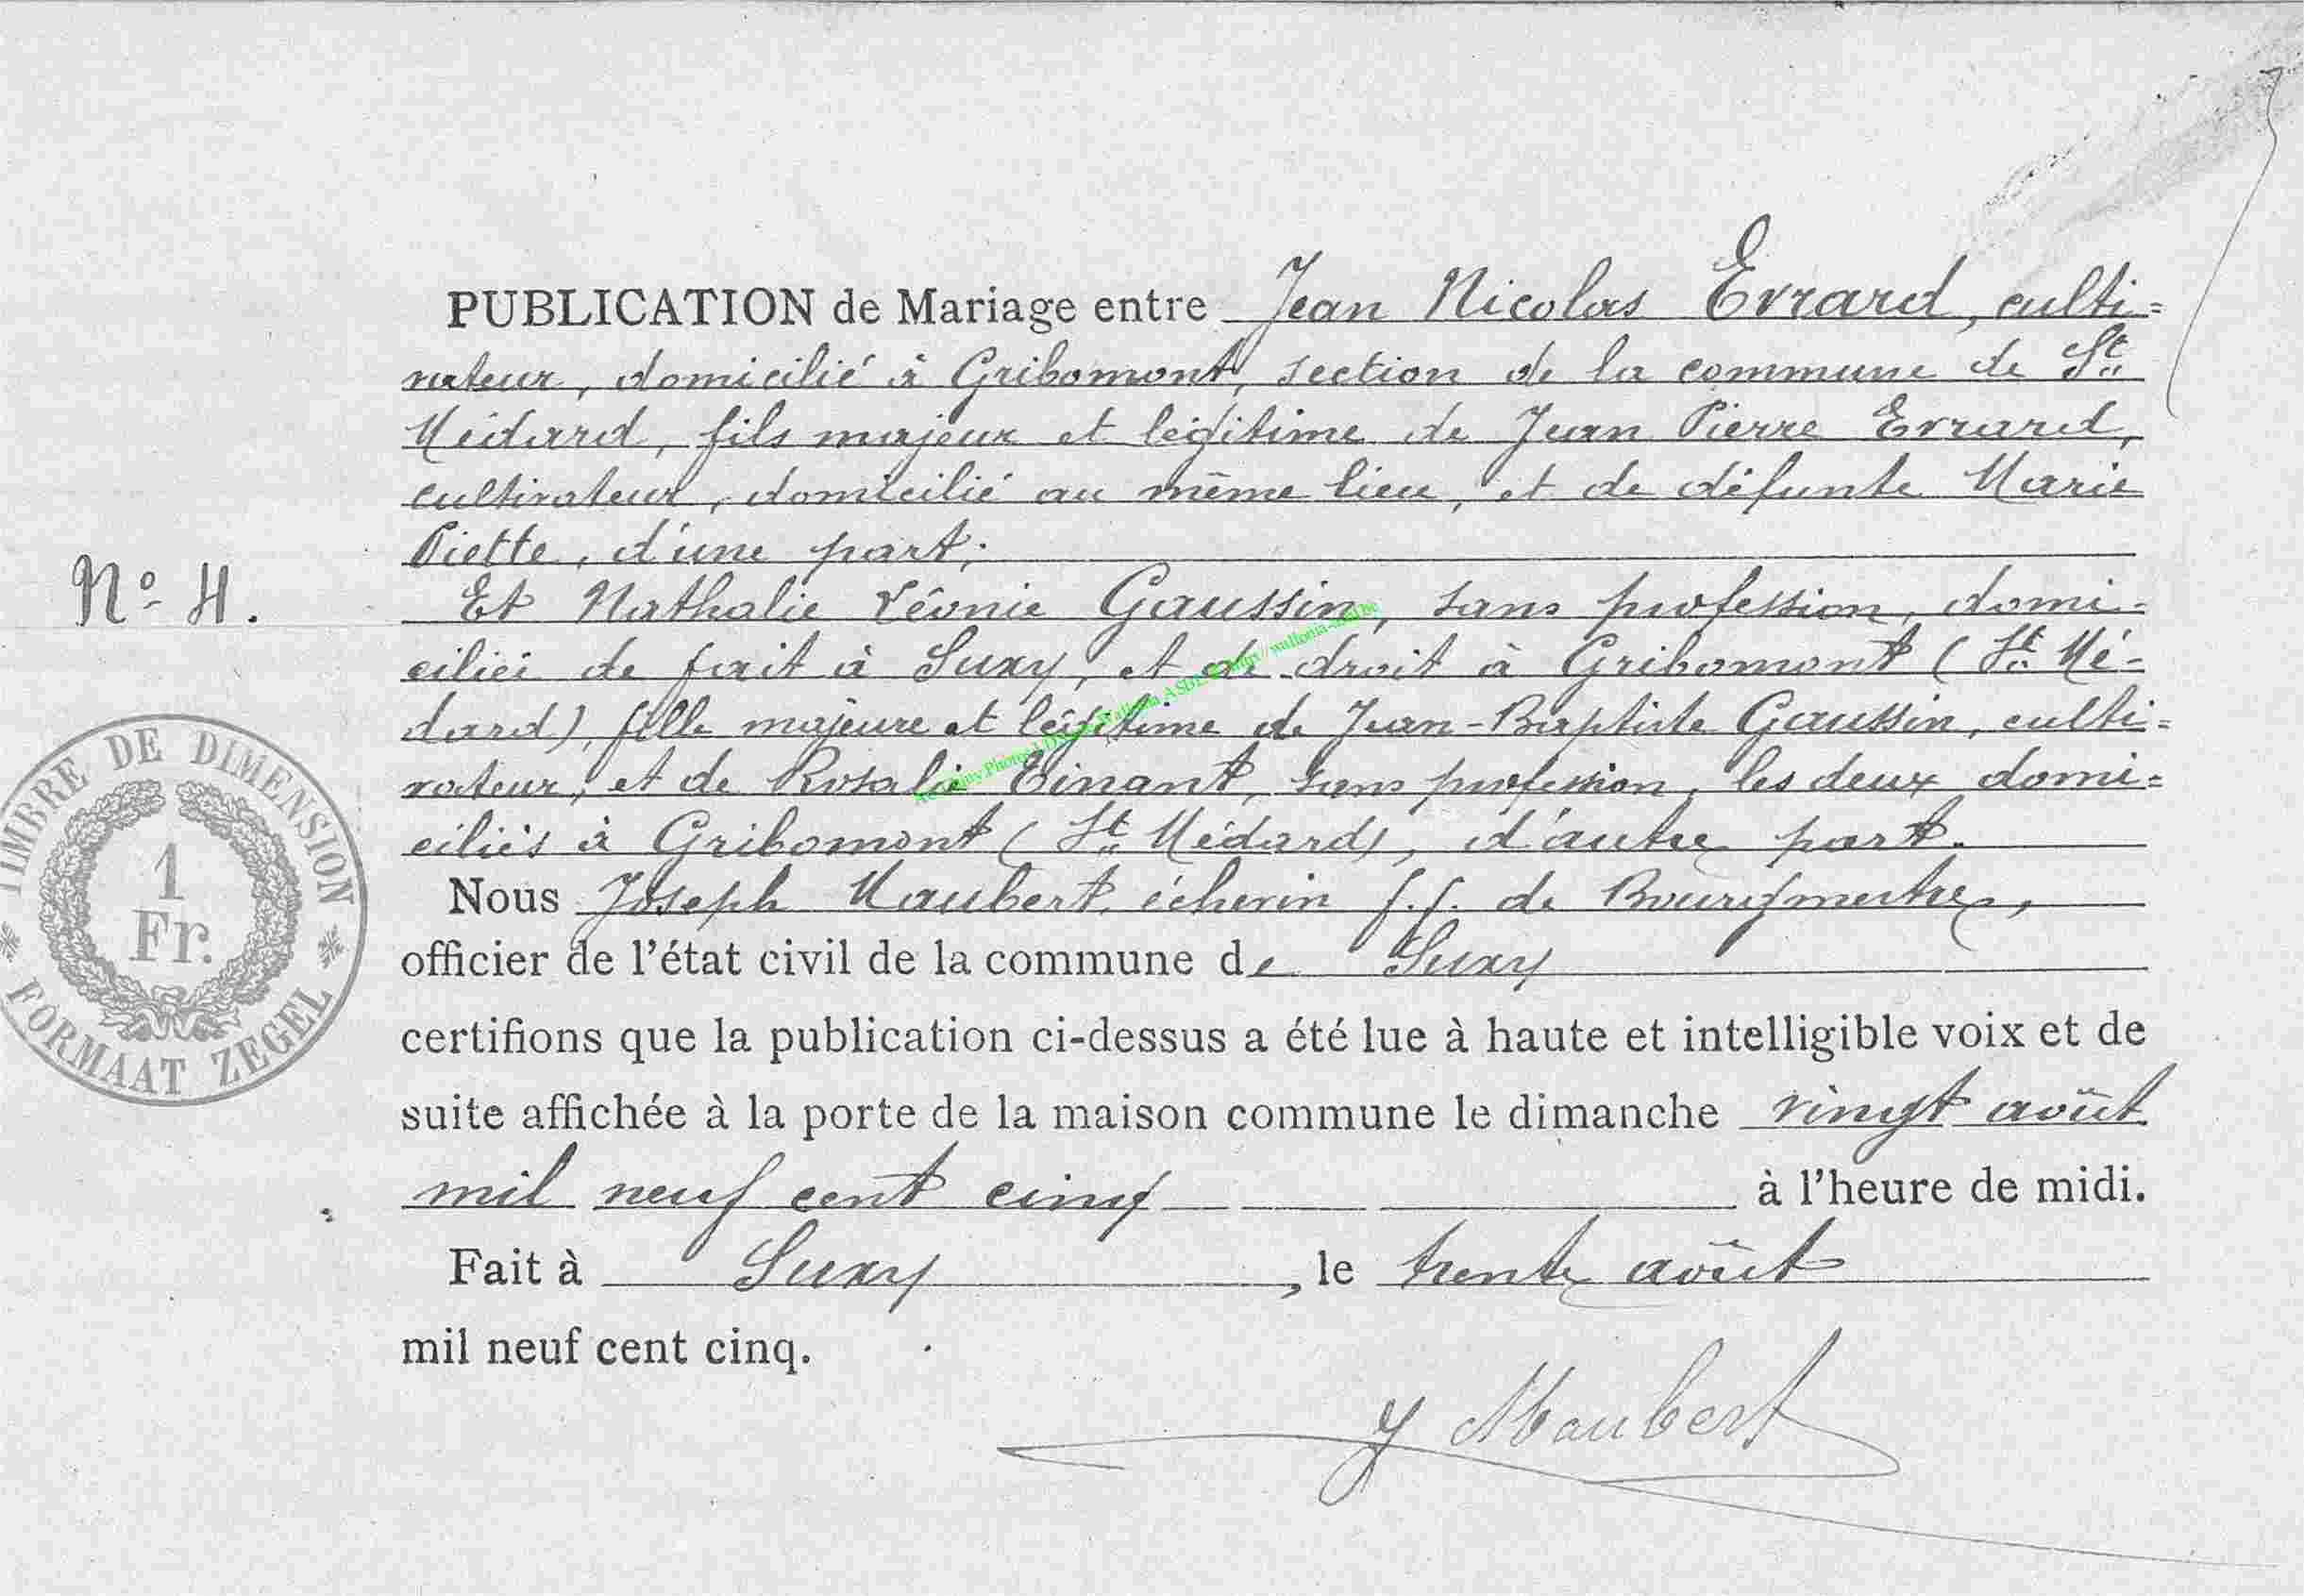 PUBLICATION de Mariage entre Jean Nicolas Evrard, culti=
vateur, domicilié à Gribomont, section de la commune de St
Médard, fils majeur et légitime de Jean Pierre Evrard,
cultivateur, domicilié au même lieu, et de défunte Marie
Piette, d'une part;
Nº 4.
Et Nathalie Léonie Gaussin, sans profession, domi-
ciliée de fait à Suxy, et de droit à Gribomont (St Mé-
dard), fille majeure et légitime de Jean-Baptiste Gaussin, culti=
vateur, et de Rosalie Einant, sans profession, les deux domi=
ciliés à Gribomont (St Médard), d'autre part.
TIMBRE DE DIMENSION
1
Fr.
FORMAAT ZEGEL
Nous Joseph Maubert, échevin f.f. de Bourgmestre,
officier de l'état civil de la commune de Suxy
certifions que la publication ci-dessus a été lue à haute et intelligible voix et de
suite affichée à la porte de la maison commune le dimanche vingt août
mil neuf cent cinq à l'heure de midi.
Fait à Suxy, le trente août
mil neuf cent cinq.
J Maubert